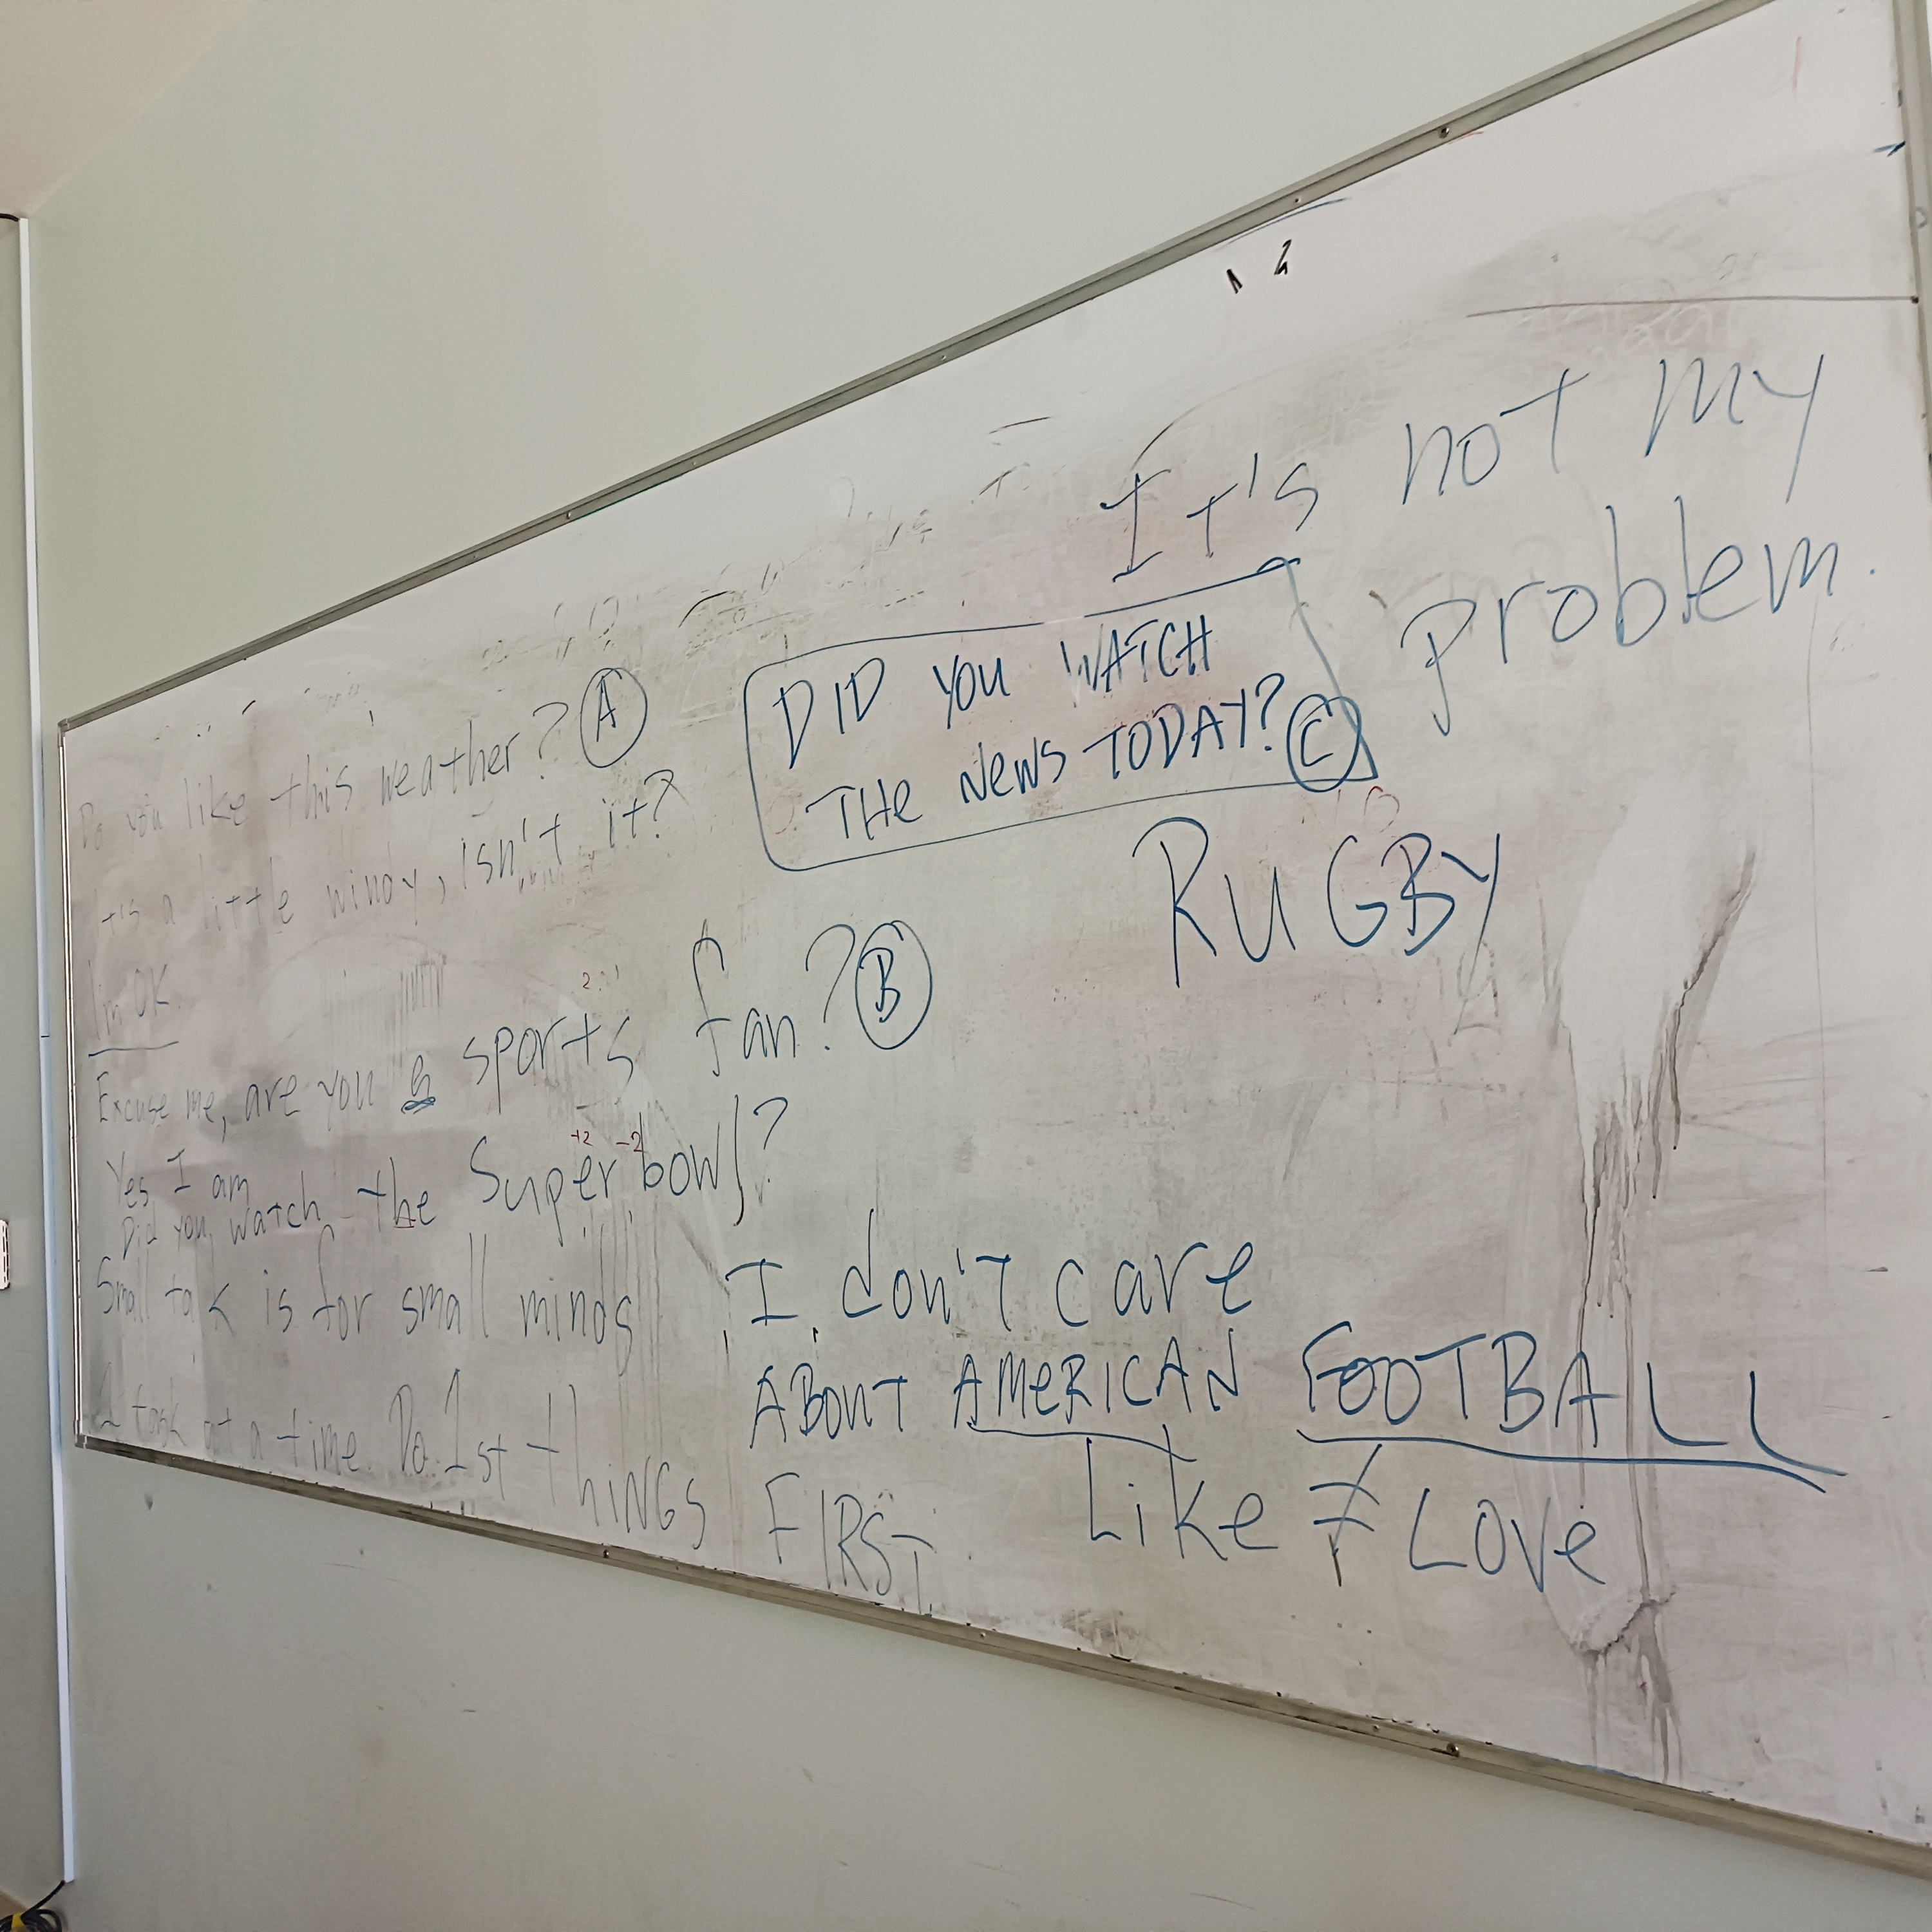 Do you like this weather? A
It's a little windy, isn't it?
I'm OK.
Excuse me, are you a sports fan? B
Yes I am
Did you watch the Super bowl?
+2 -2
Small talk is for small minds
1 task at a time. Do 1st thINGS FIRST.
It's not my
problem.
DID YOU WATCH
THE NEWS TODAY? C
RUGBY
I don't care
ABOUT AMERICAN FOOTBALL
Like ≠ LOVe